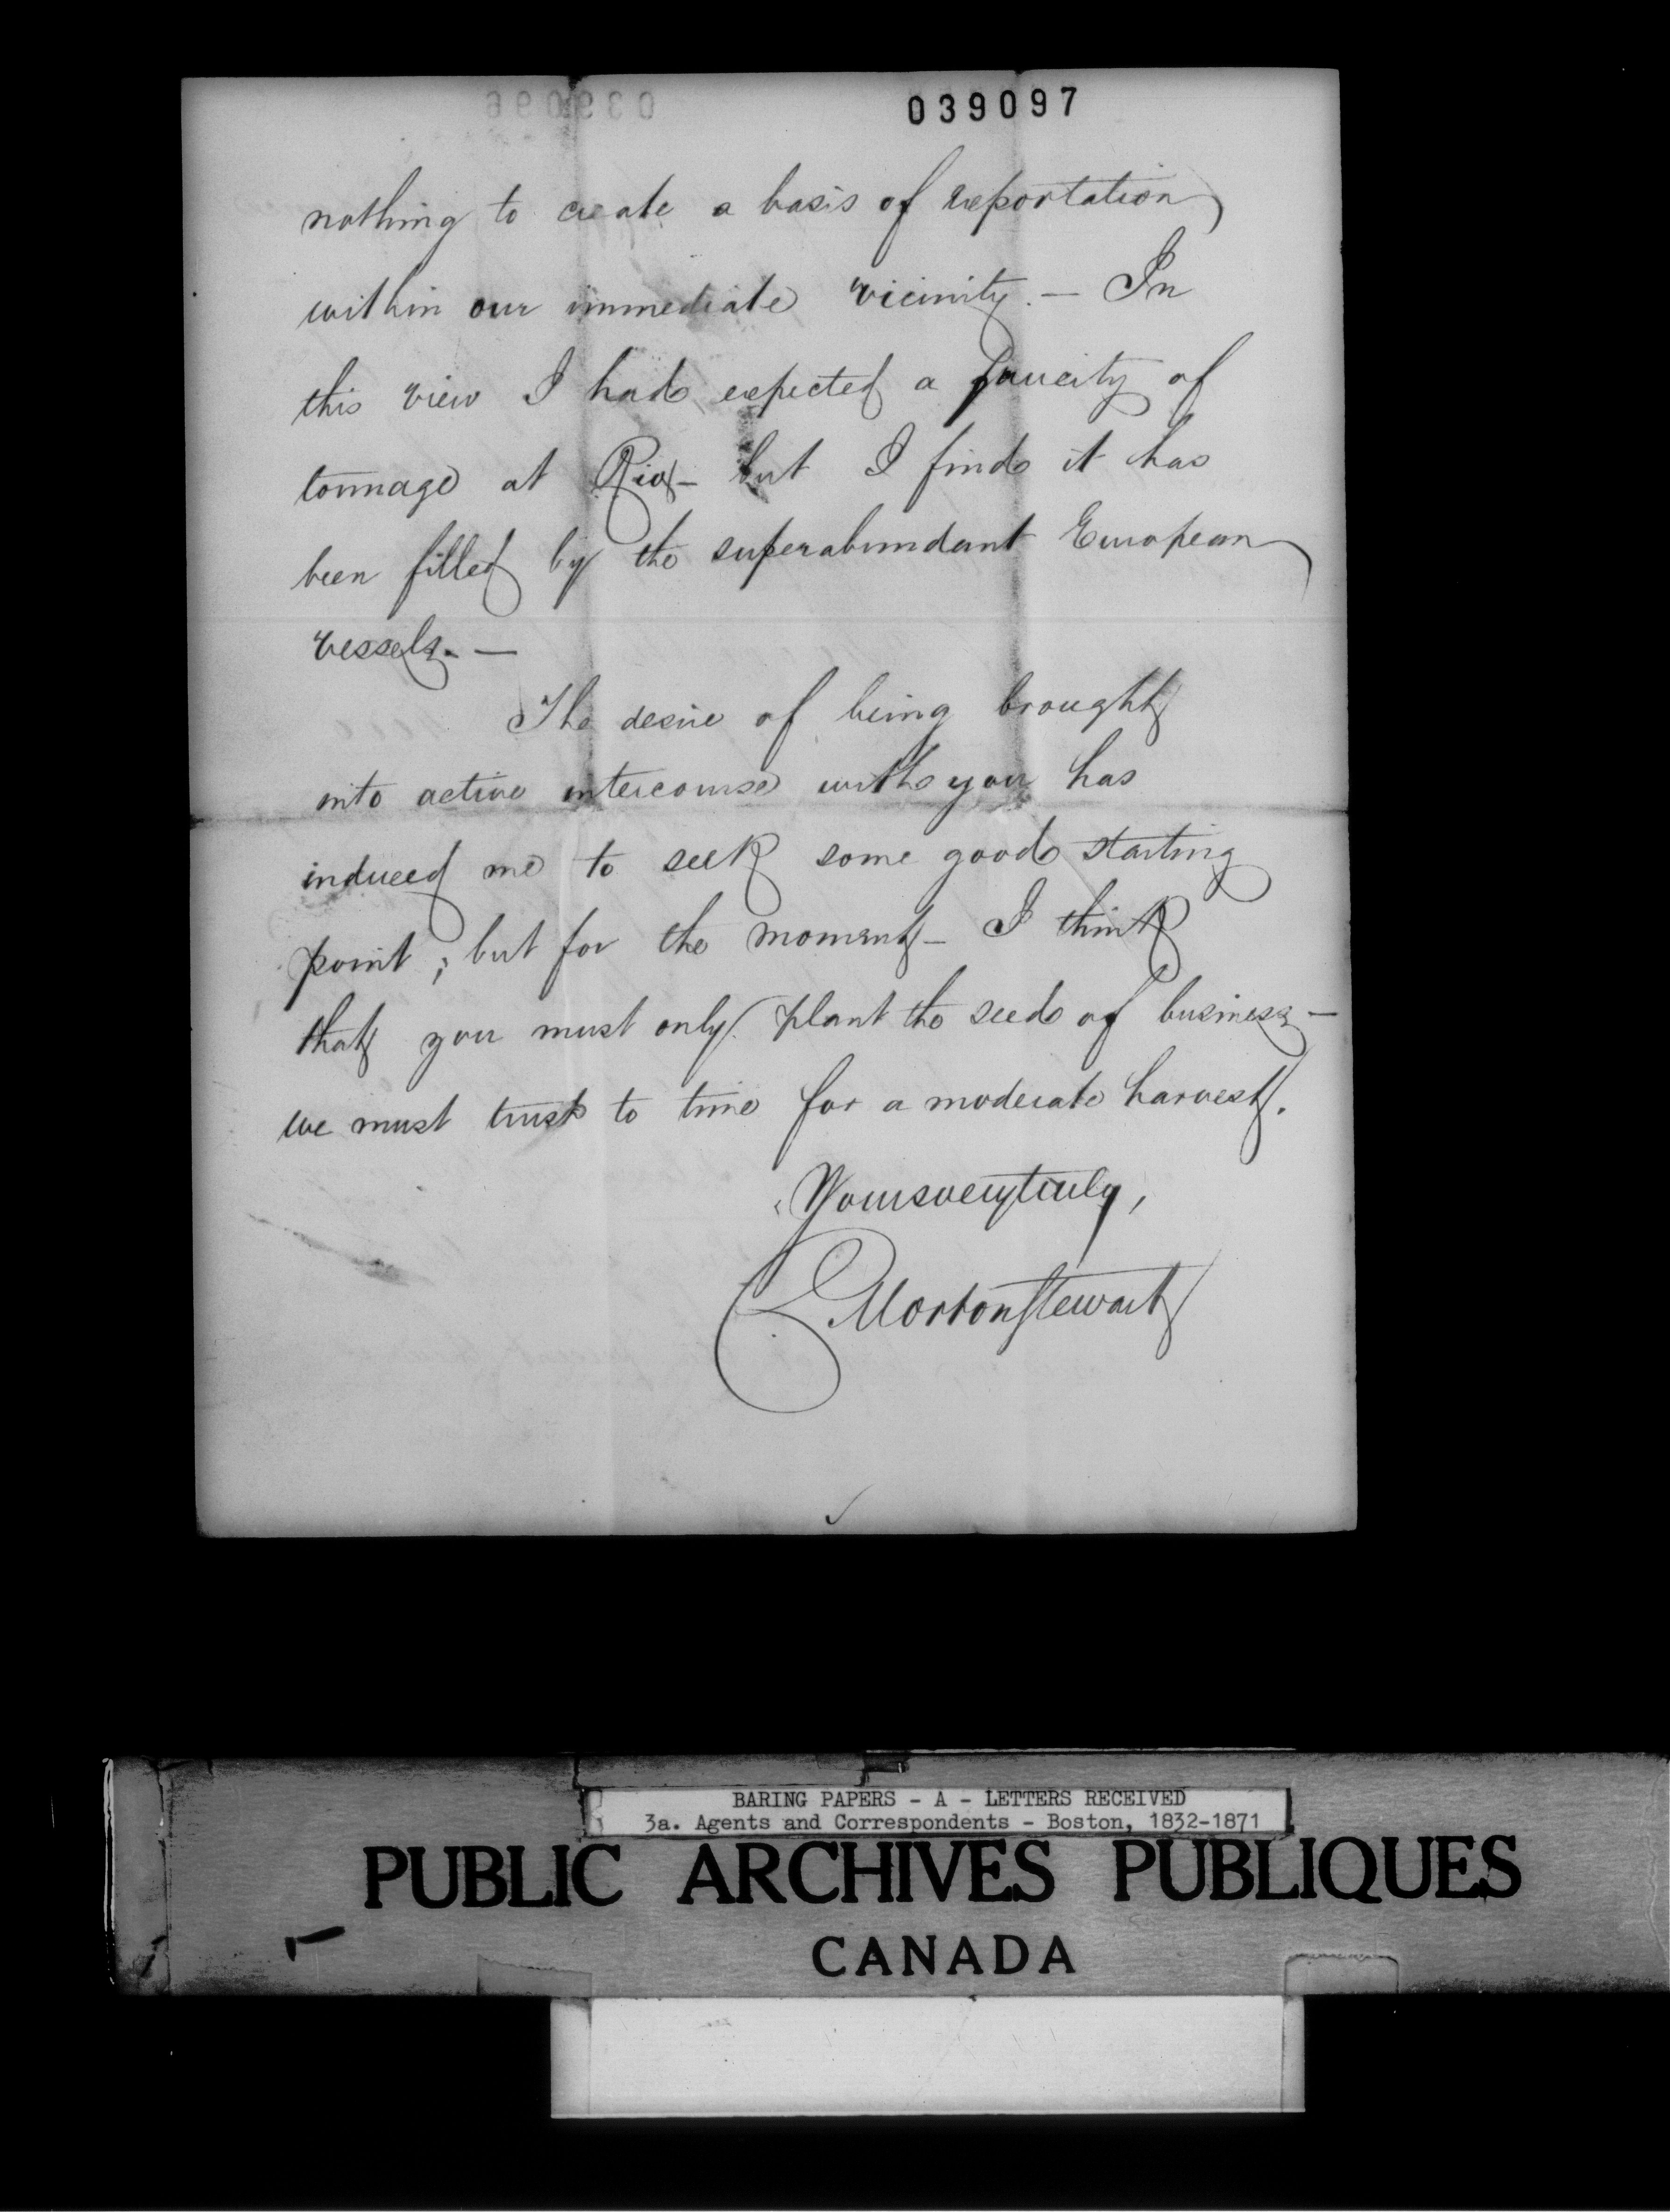 039097
039096
nothing to create a basis of exportation
within our immediate vicinity. — In
this view I had expected a paucity of
tonnage at Rio — but I find it has
been filled by the superabundant European
vessels. —
The desire of being brought
into active intercourse with you has
induced me to seek some good starting
point; but for the moment — I think
that you must only plant the seed of business —
we must trust to time for a moderate harvest.
Yours very truly,
C Morton Stewart
BARING PAPERS - A - LETTERS RECEIVED
3a. Agents and Correspondents - Boston, 1832-1871
PUBLIC ARCHIVES PUBLIQUES
CANADA